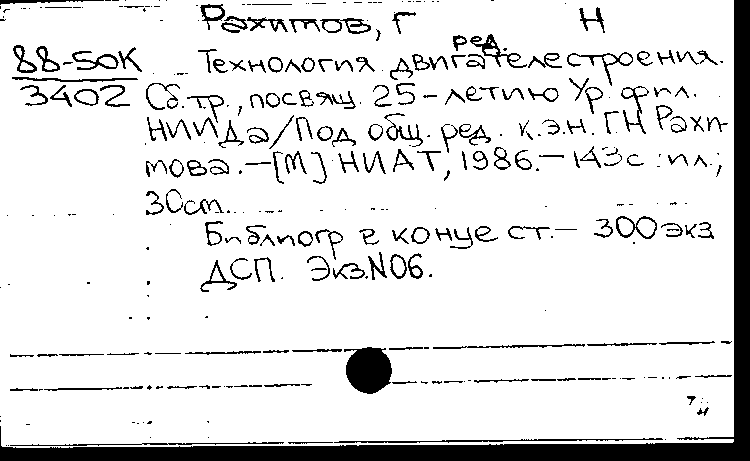 Рахимов, Г Н
ред.
88-50К Технология двигателестроения.
3402 Сб. тр., посвящ. 25-летию Ур. фил.
НИИДа/Под общ. ред. к.э.н. Г Н Рахи-
мова.—[М] НИАТ, 1986.—143с :ил.;
30см.
Библиогр в конце ст.— 300 экз
ДСП. Экз.N06.